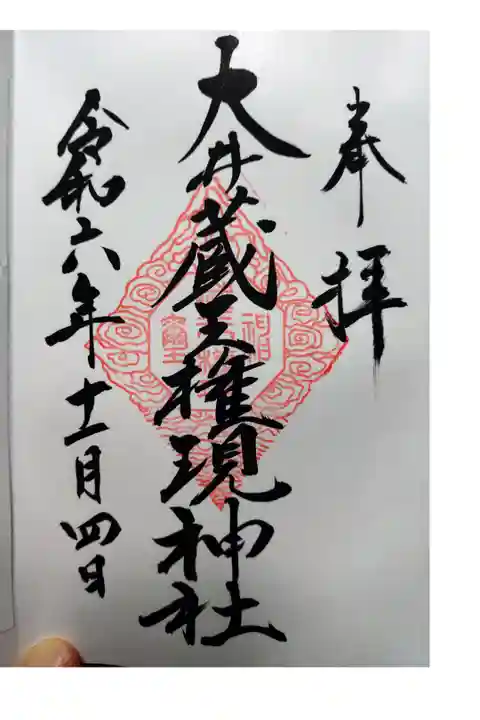 奉拝
大井蔵王権現神社
令和六年十一月四日